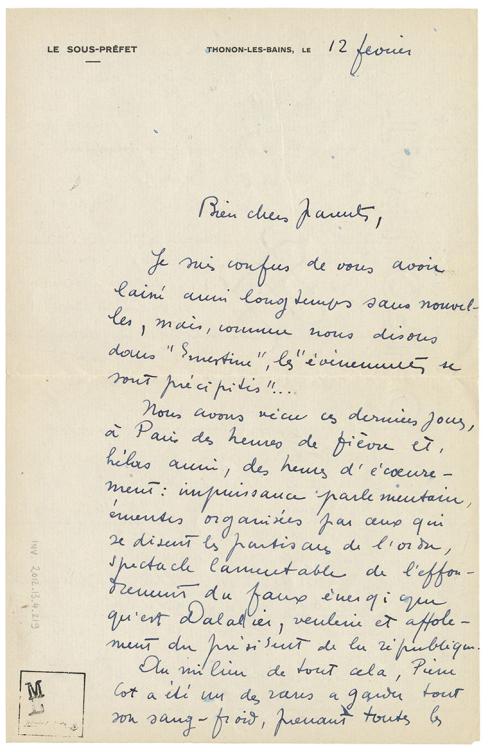 LE SOUS-PRÉFET
THONON-LES-BAINS, LE 12 février
Bien chers parents,
Je suis confus de vous avoir
laissé aussi longtemps sans nouvel-
les, mais, comme nous disons
dans "Ernestine", les "événements se
sont précipités"...
Nous avons vécu ces derniers jours,
à Paris des heures de fièvre et,
hélas aussi, des heures d'écoeure-
ment : impuissance parlementaire,
émeutes organisées par ceux qui
se disent les partisans de l'ordre,
spectacle lamentable de l'effon-
drement du faux énergique
qu'est Daladier, veulerie et affole-
ment du président de la république.
Au milieu de tout cela, Pierre
Cot a été un des rares a garder tout
son sang-froid, prenant toutes les
INV 2012.13.4.219
M